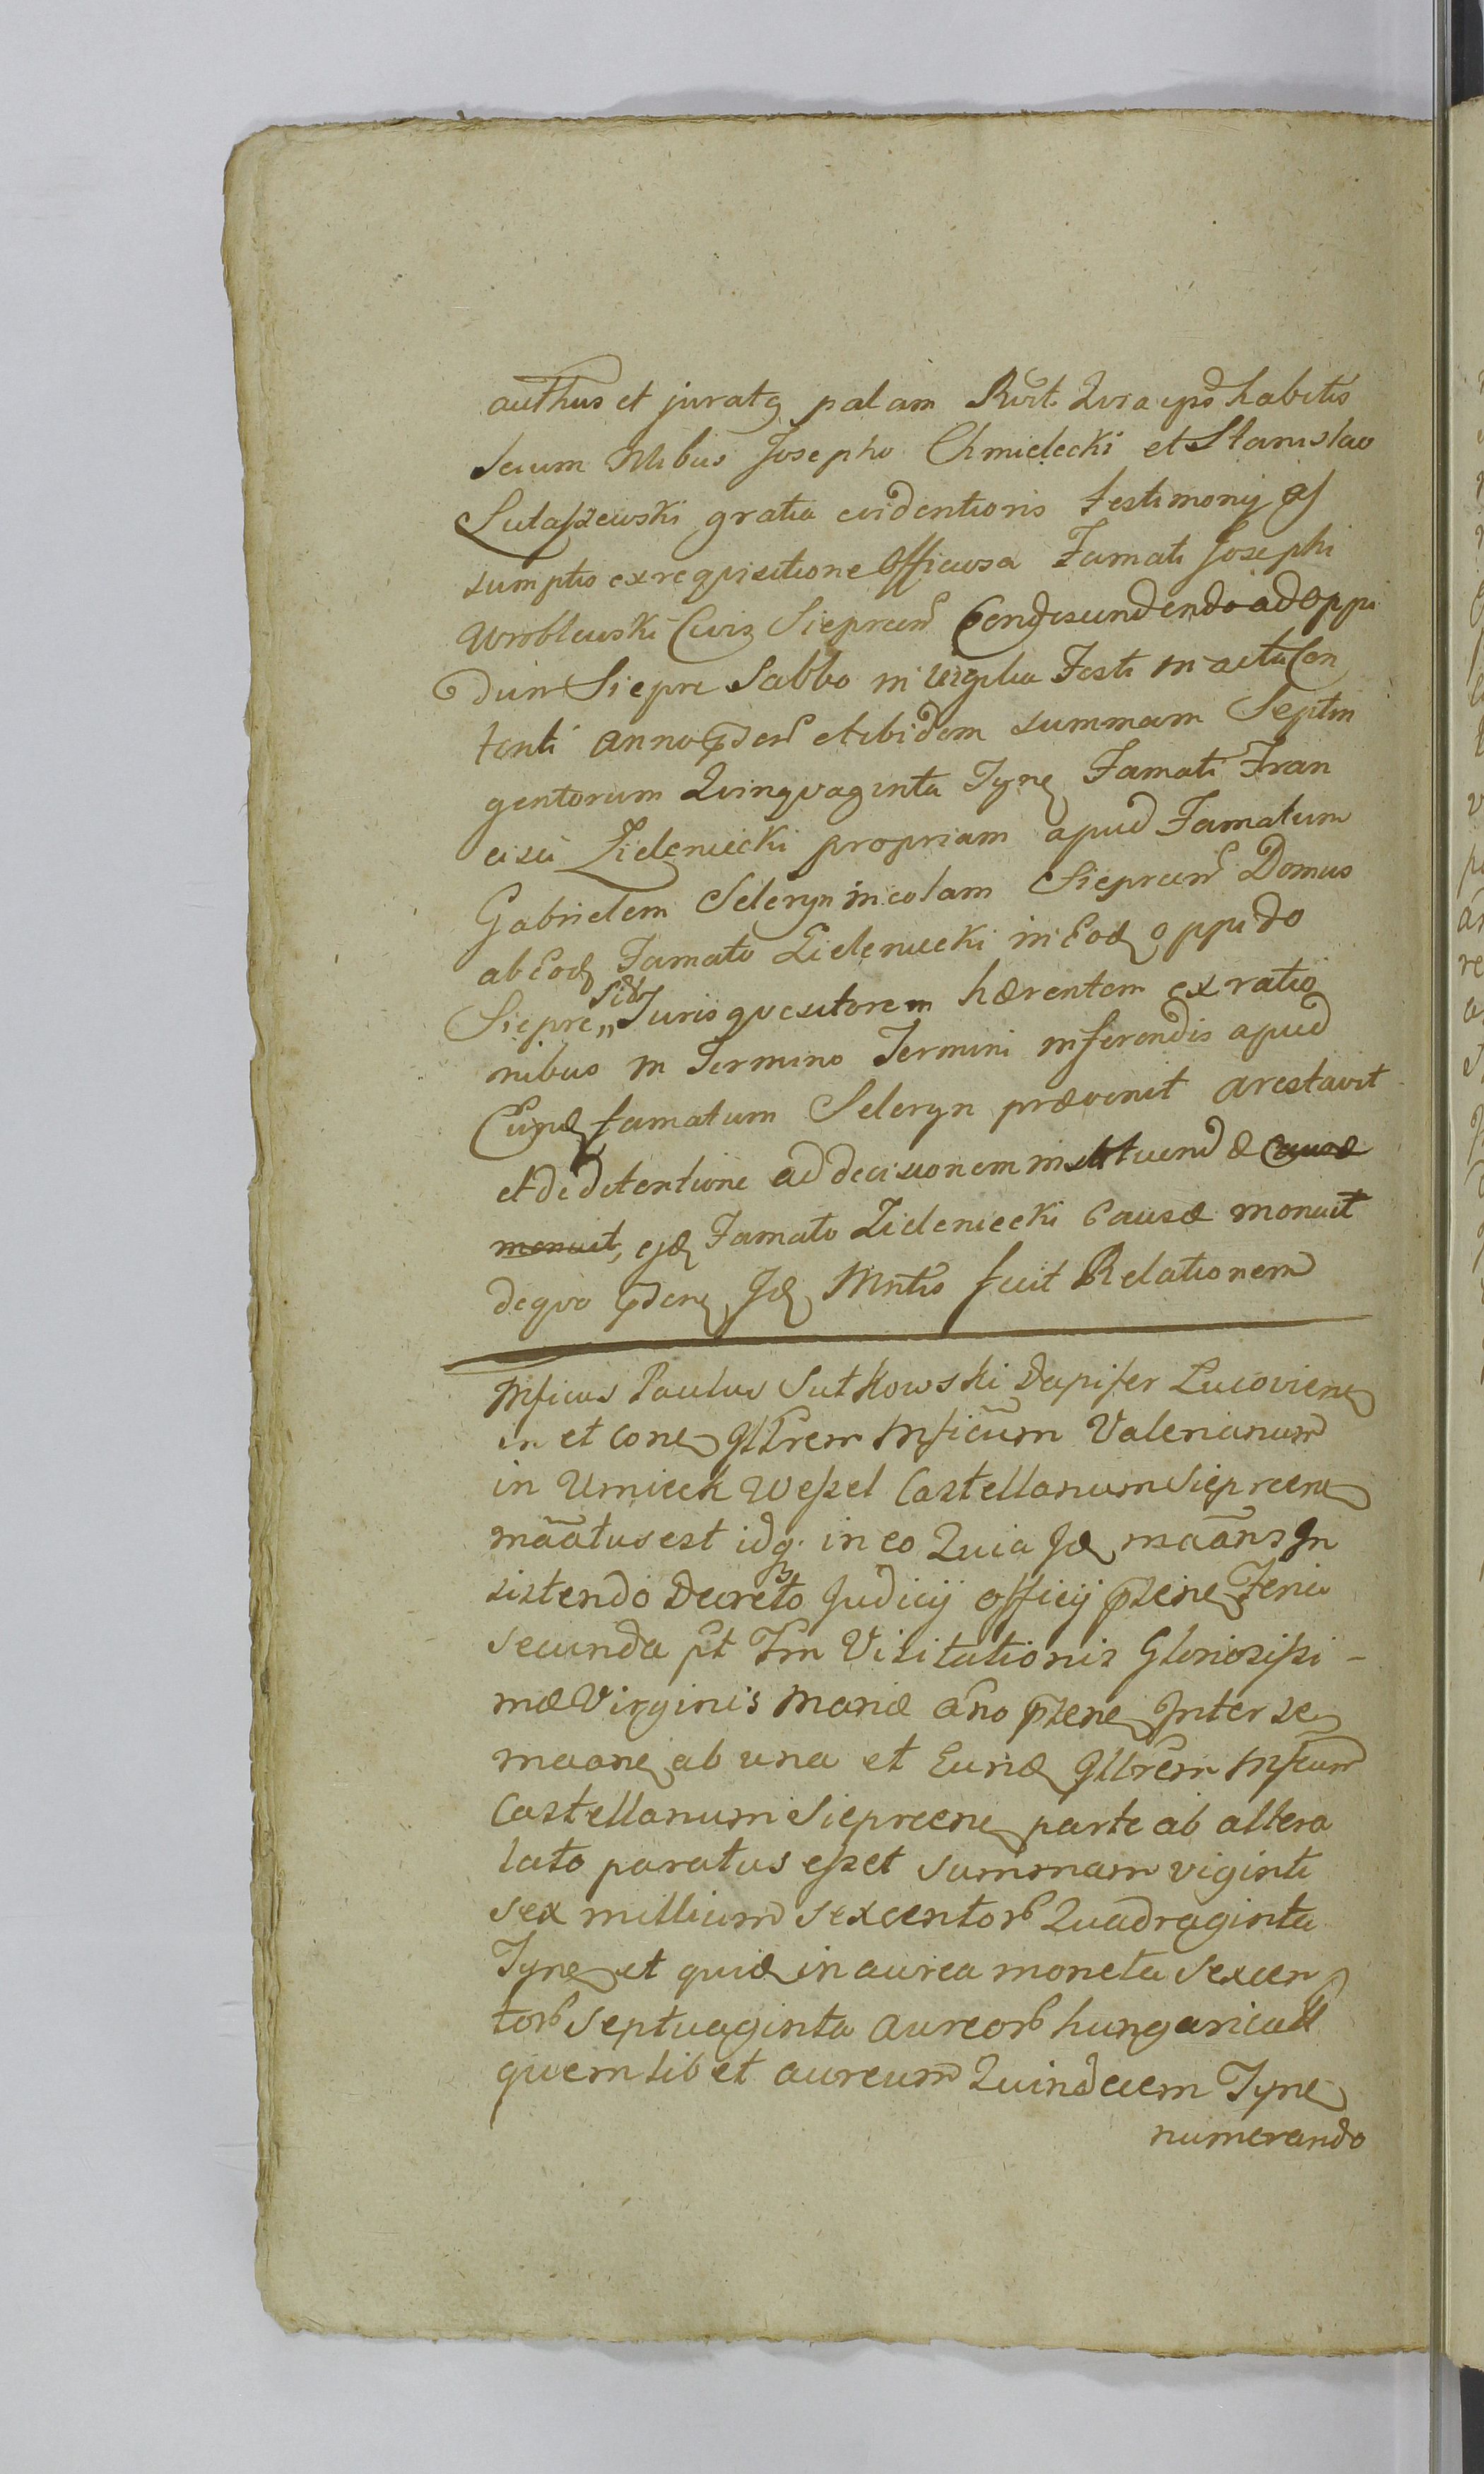 authus et juratq palam Rvit Quia ips habitis
secum Nlibus Josepho Chmielecki et Stanislao
Lutaszewski gratia evidentioris testimonij as
sumptis ex reqvisitione Officiosa Famati Josephi
Wroblewski Civis Sieprcen Condescundendo ad oppi
dum Siepre Sabbo in vigilia Festi in actu Con
tenti anno pden et ibidem summam Septin
gentorum Qvinqvaginta Tyne Famati Fran
cisci Zieleniecki propriam apud Famatum
Gabrielem Seleryn incolam Sieprcen Domus
ab Eod Famato Zieleniecki in Eod oppido
Siepre Jurisqvesitorem hærentem ex ratio
nibus in Termino Termini inferendis apud
Eund famatum Seleryn prævenit arestavit
et de detentione ad decisionem instituendæ causæ
monuit, ejd Famato Zieleniecki Causæ monuit
deqvo pden Jd Mntis fecit Relationem
Mficus Paulus Sutkowski Dapifer Lucoviene
in et cone Gllrem Mficum Valerianum
in Umieck Weszel Castellanum Sieprcene
mãatus est idq. in eo Quia Jd maans In
sistendo Decreto Judicij officij psene Feria
secunda pt Fm Visitationis Gloriosissi-
mæ Virginis Mariæ año psene Inter se
maane ab una et Eund Gllrem Mficum
Castellanum Sieprcene parte ab altera
lato paratus eszet summam viginti
sex millium sexcentor Quadraginta
Tyne et quid in aurea moneta sexcen
tor septuaginta Aureor hungaricall
quemlibet aureum Quindecim Tyne
numerando